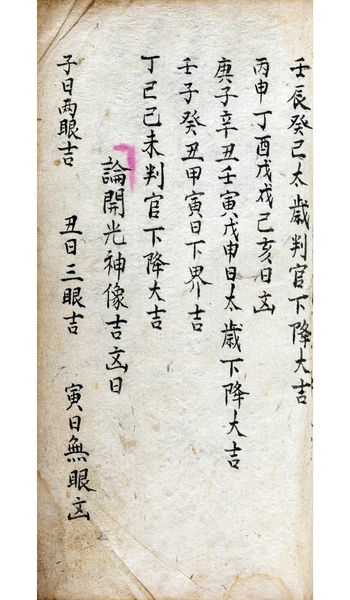 壬辰癸巳太歲判官下降大吉
丙申丁酉戊戌己亥日凶
庚子辛丑壬寅戊申日太歲下降大吉
壬子癸丑甲寅日下界吉
丁巳己未判官下降大吉
論開光神像吉凶日
子日兩眼吉 丑日三眼吉 寅日無眼凶